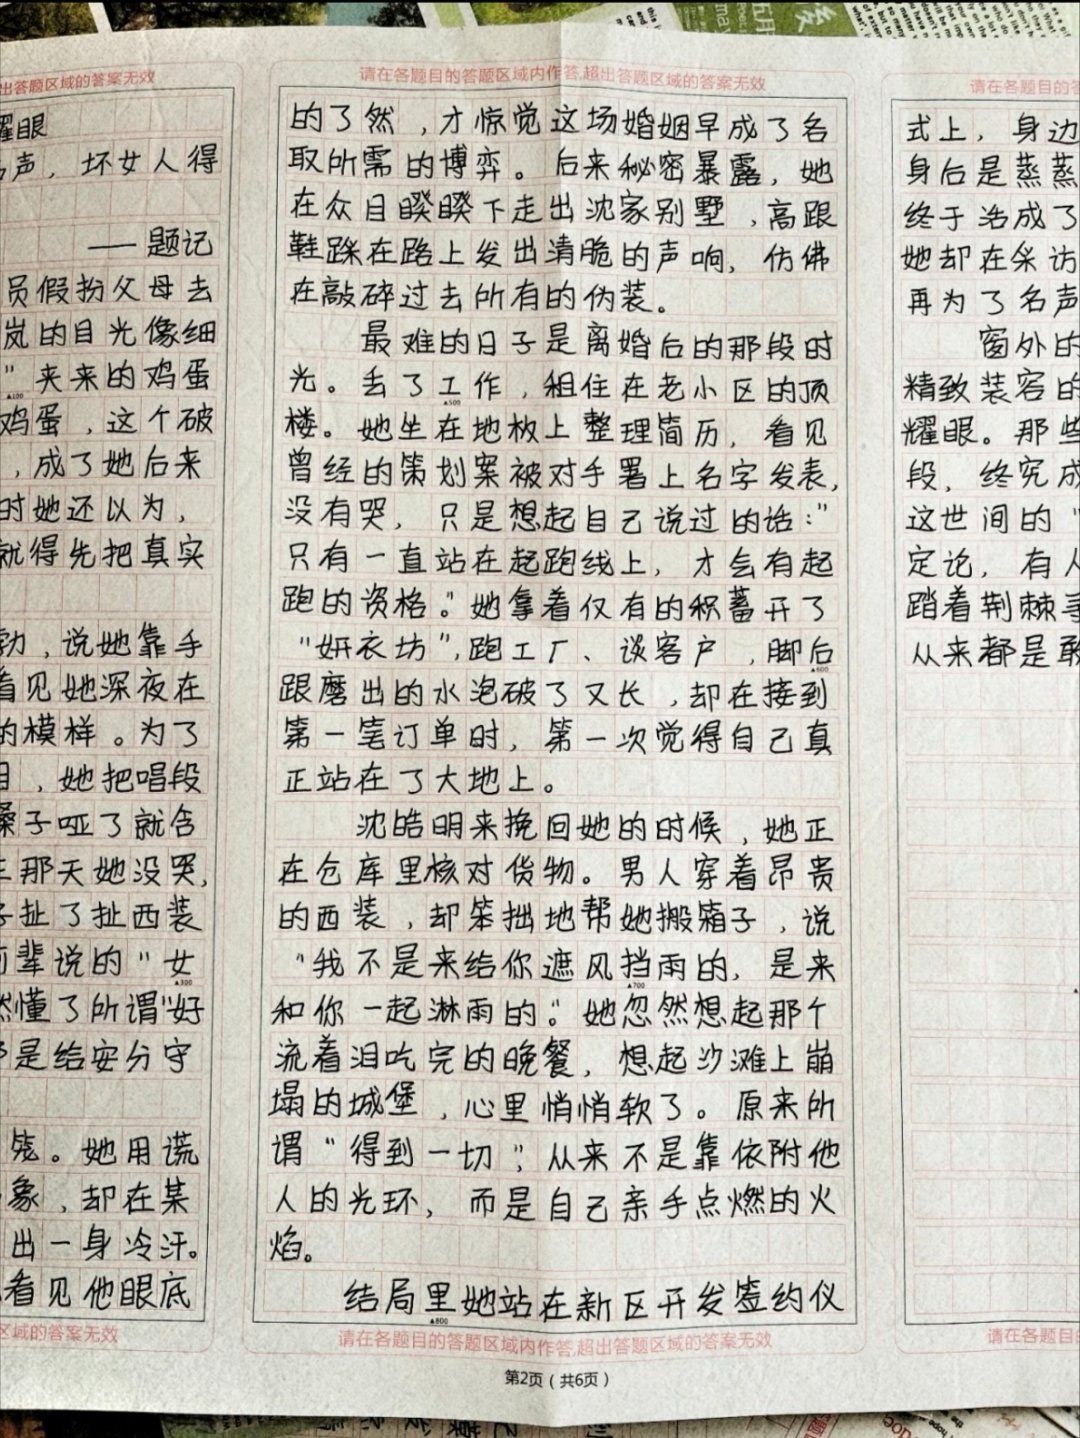 出答题区域的答案无效
耀眼
声，坏女人得
——题记
员假扮父母去
岚的目光像细
"夹来的鸡蛋
鸡蛋，这个破
，成了她后来
时她还以为，
就得先把真实
勃，说她靠手
看见她深夜在
的模样。为了
，她把唱段
嗓子哑了就含
那天她没哭，
扯了扯西装
前辈说的"女
▲300
然懂了所谓"好
是给安分守
。她用谎
象，却在某
出一身冷汗。
看见他眼底
区域的答案无效
请在各题目的答题区域内作答,超出答题区域的答案无效
的了然，才惊觉这场婚姻早成了各
取所需的博弈。后来秘密暴露，她
在众目睽睽下走出沈家别墅，高跟
鞋踩在路上发出清脆的声响，仿佛
在敲碎过去所有的伪装。
最难的日子是离婚后的那段时
光。丢了工作，租住在老小区的顶
▲500
楼。她坐在地板上整理简历，看见
曾经的策划案被对手署上名字发表，
没有哭，只是想起自己说过的话："
只有一直站在起跑线上，才会有起
跑的资格。"她拿着仅有的积蓄开了
"妍衣坊"，跑工厂、谈客户，脚后
▲600
跟磨出的水泡破了又长，却在接到
第一笔订单时，第一次觉得自己真
正站在了大地上。
沈皓明来挽回她的时候，她正
在仓库里核对货物。男人穿着昂贵
的西装，却笨拙地帮她搬箱子，说
"我不是来给你遮风挡雨的，是来
▲700
和你一起淋雨的。"她忽然想起那个
流着泪吃完的晚餐，想起沙滩上崩
塌的城堡，心里悄悄软了。原来所
谓"得到一切"，从来不是靠依附他
人的光环，而是自己亲手点燃的火
焰。
结局里她站在新区开发签约仪
▲800
请在各题目的答题区域内作答,超出答题区域的答案无效
第2页（共6页）
请在各题目的
式上，身边
身后是蒸蒸
终于活成了
她却在采访
再为了名声
窗外的
精致装容的
耀眼。那些
段，终究成
这世间的"
定论，有人
踏着荆棘
从来都是敢
请在各题目